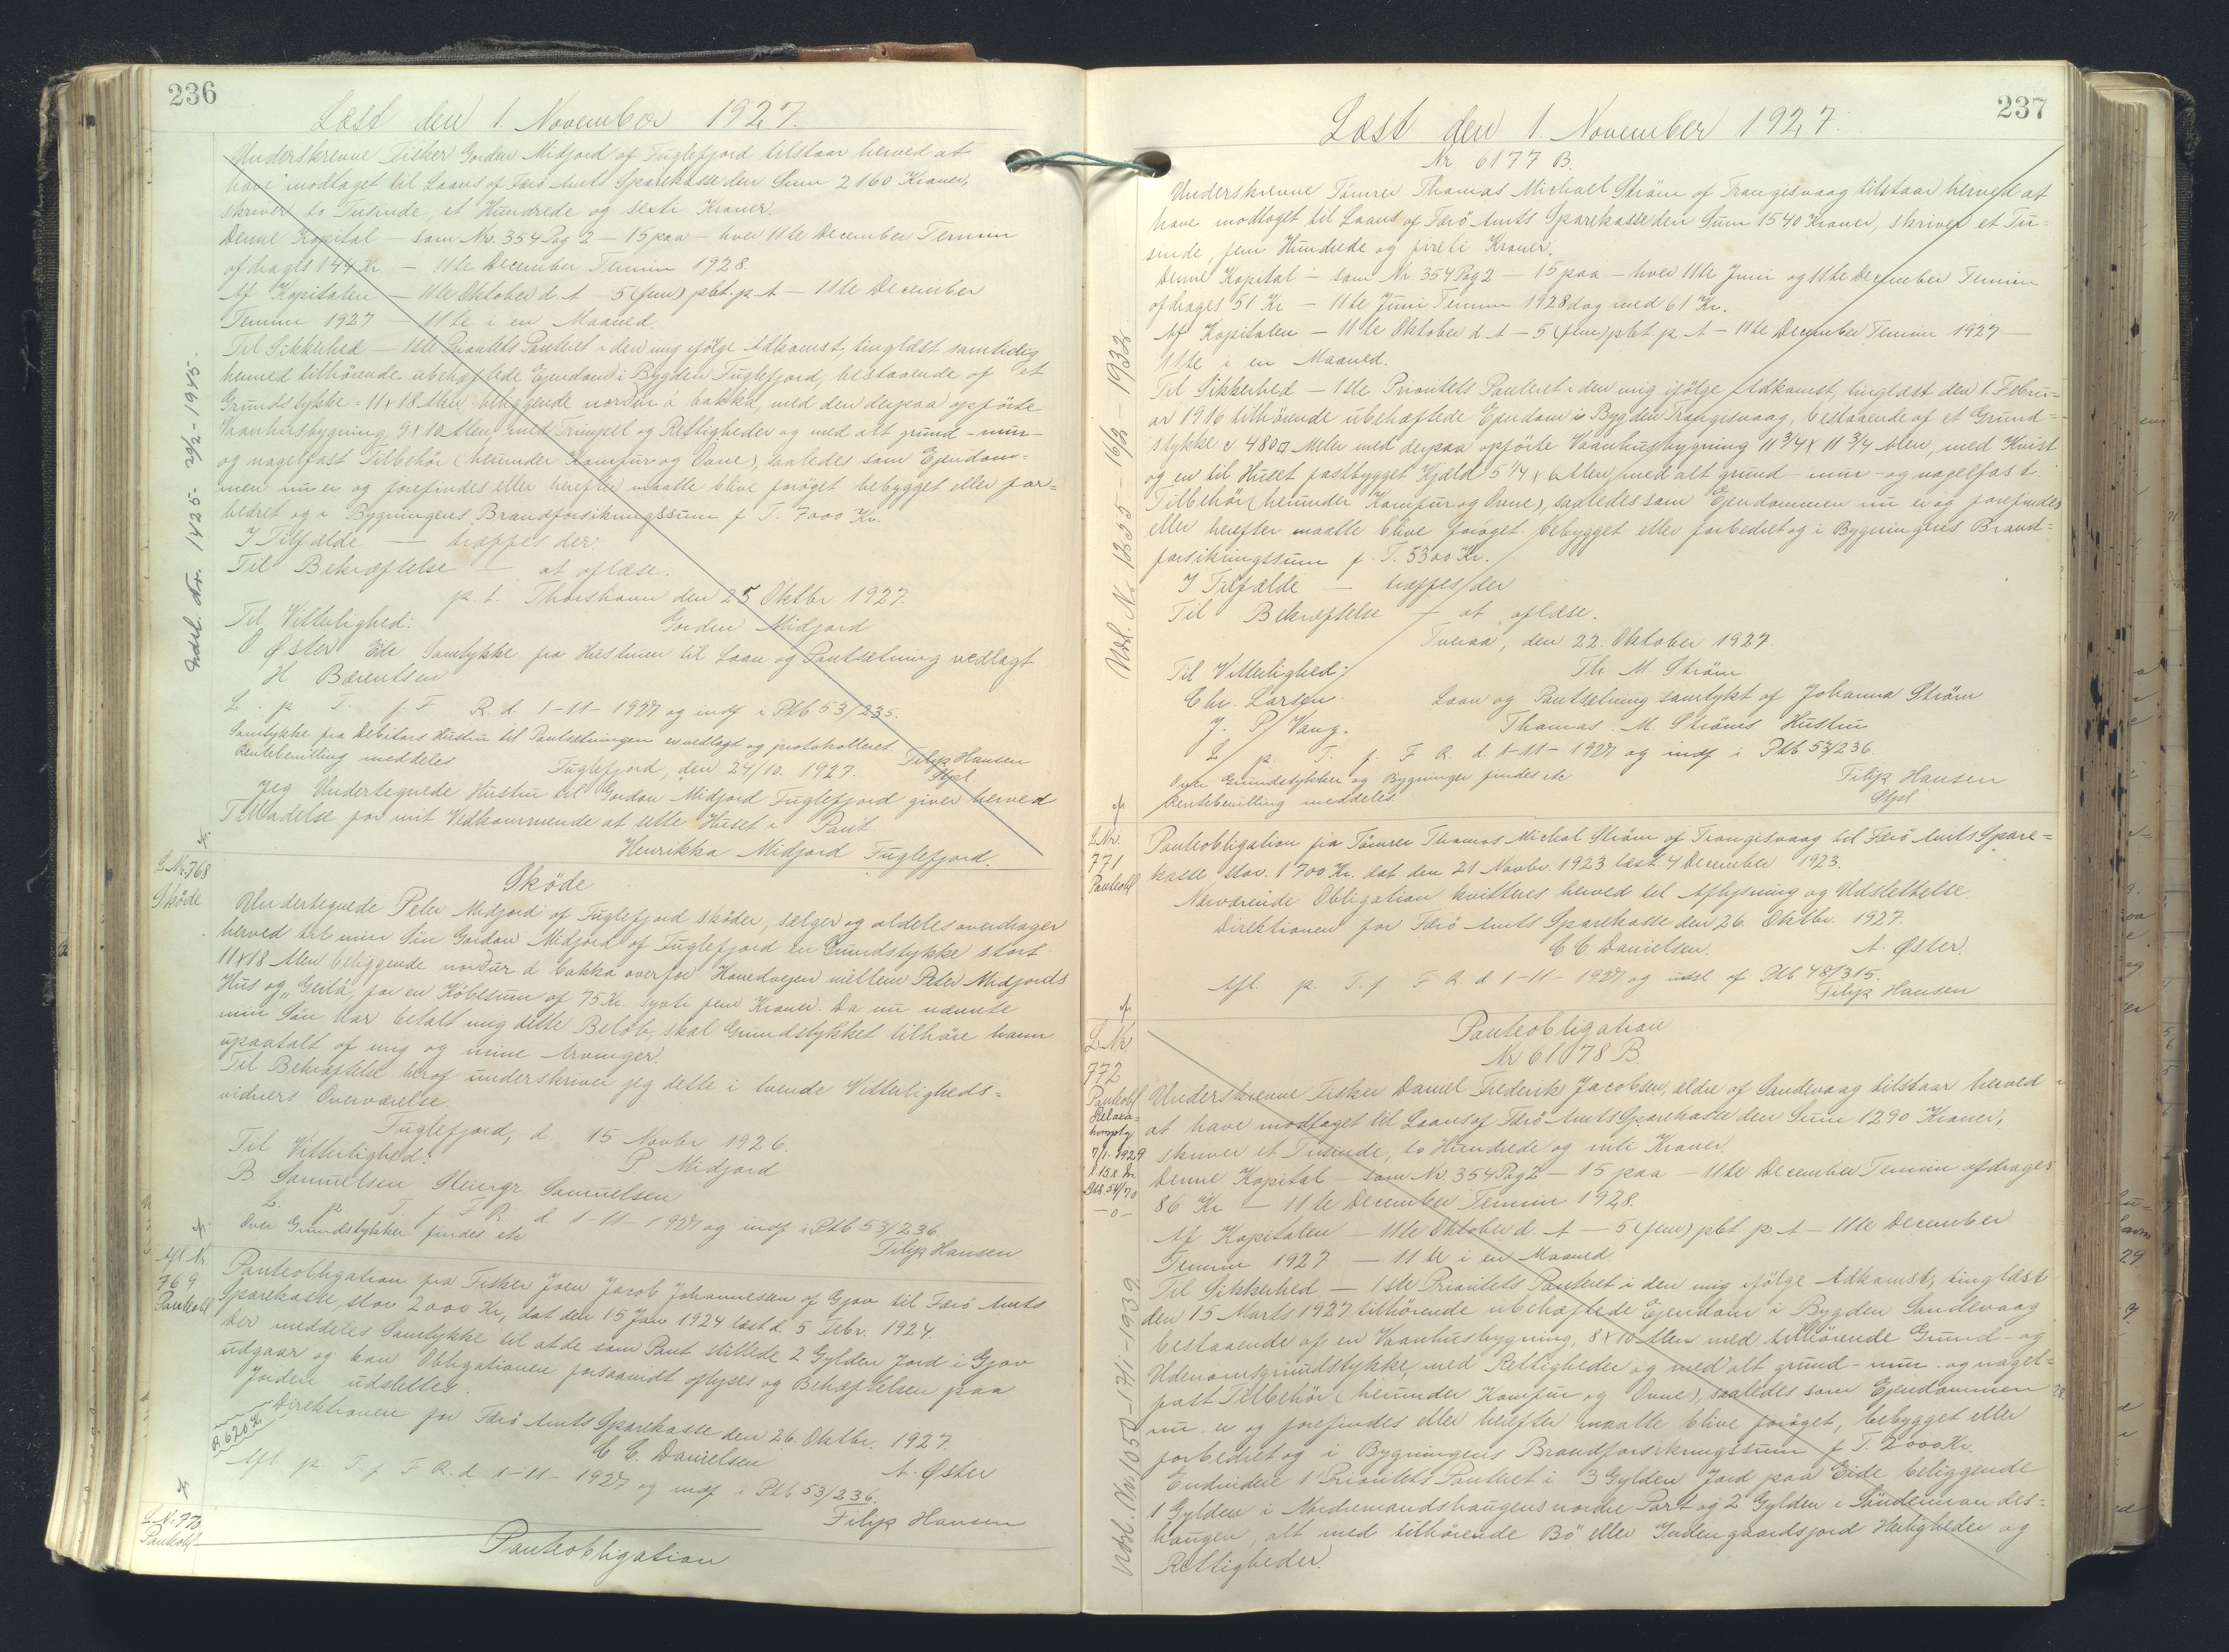 236
Læst den 1 November 1927.
Underskrevne Fisker Gordon Midjord af Fuglefjord tilstaar herved at
have modtaget til Laans af Færö Amts Sparekasse den Sum 2160 Kroner,
skriver to Tusinde, et Hundrede og seksti Kroner.
Denne Kapital - som Nr. 354 Pag 2 - 15 paa - hver 11te December Termin
afdrages 144 Kr. - 11te December Termin 1928.
Af Kapitalen - 11te Oktober d. A - 5 (fem) pCt. p. A - 11te December
Termin 1927 - 11te i en Maaned.
Til Sikkerhed - 1ste Prioritets Panteret i den mig ifölge Adkomst, tinglæst samtidig
hermed tilhörende ubehæftede Ejendom i Bygden Fuglefjord, bestaaende af et
Grundstykke = 11 x 18 Alen beliggende norður á bakka, med den derpaa opförte
Vaanhusbygning 9 x 10 Alen, med Trumpel og Rettigheder og med alt grund - mur-
og nagelfast Tilbehör (herunder Komfur og Ovne), saaledes som Ejendom=
men nu er og forefindes eller herefter maatte blive forøget bebygget eller for=
bedret og i Bygningens Brandforsikringssum f. T. 7000 Kr.
I Tilfælde - træffes der.
Til Bekræftelse - at aflæse.
p. t. Thorshavn den 25 Oktbr 1927.
Til Vitterlighed: Gorden Midjord
O Øster Ede Samtykke fra Hustruen til Laan og Pantsætning vedlagt
H Bærentsen
L. p. T. f. F. R. d. 1-11-1927 og indf i Ptb 53/235.
Samtykke fra Debitors Hustru til Pantsætningen er vedlagt og protokolleret.
Rentebevilling meddeles Filip Hansen
Stpl
Fuglefjord, den 24/10. 1927.
Jeg Undertegnede Hustru til Gordon Midjord Fuglefjord giver herved
Tilladelse for mit Vedkommende at sette Huset i Pant
Henrikka Midjord Fuglefjord.
Udsl. Nr. 1425 - 29/2 - 1945.
L Nr. 768
Sköde
Sköde
Undertegnede Peter Midjord af Fuglefjord sköder, sælger og aldeles overdrager
herved til min Sön Gordon Midjord af Fuglefjord en Grundstykke stort
11x18 Alen beliggende norður á bakka overfor Hovedvejen mellem Peter Midjords
Hus og "Geilá" for en Köbesum af 75 Kr. syvti fem Kroner. Da nu nævnte
min Sön har betalt mig dette Belöb, skal Grundstykket tilhöre ham
upaatalt af mig og mine Arvinger.
Til Bekræftelse heraf underskriver jeg dette i tvende Vitterligheds=
vidners Overværelse.
Fuglefjord, d. 15 Novbr 1926.
Til Vitterlighed: P Midjord
B. Samuelsen Steingr. Samuelsen
L. p. T. f. F. R. d. 1-11-1927 og indf i Ptb 53/236.
Over Grundstykker findes etc Filip Hansen
Afl. Nr.
769
Panteobl
Panteobligation fra Fisker Joen Jacob Johannesen af Gjov til Færö Amts
Sparekasse, stor 2000 Kr., dat den 15 Jan 1924 læst d. 5 Febr. 1924.
Der meddeles Samtykke til at de som Pant stillede 2 Gylden Jord i Gjov
udgaar og kan Obligationen forsaavidt aflyses og Behæftelsen paa
Jorden udslettes.
Direktionen for Færö Amts Sparekasse den 26. Oktbr. 1927.
C C. Danielsen A. Øster
Afl. p. T. f. F. R. d. 1-11-1927 og indf i Ptb 53/236.
Filip Hansen
L. Nr. 770
Panteobl
Panteobligation
237
Læst den 1. November 1927.
Nr. 6177 B.
Underskrevne Tömrer Thomas Michael Ström af Trangisvaag tilstaar herved at
have modtaget til Laans af Færö Amts Sparekasse den Sum 1540 Kroner, skriver et Tu=
sinde, fem Hundrede og firti Kroner.
Denne Kapital - som Nr. 354 Pag 2 - 15 paa - hver 11te Juni og 11te December Termin
afdrages 51 Kr - 11te Juni Termin 1928 dog med 61 Kr.
Af Kapitalen - 11te Oktober d. A - 5 (fem) pCt p. A - 11te December Termin 1927 -
11te i en Maaned.
Til Sikkerhed - 1ste Prioritets Panteret i den mig ifölge Adkomst, tinglæst den 1. Febru=
ar 1916 tilhörende ubehæftede Ejendom i Bygden Trangisvaag, bestaaende af et Grund=
stykke c 480 □ Meter med derpaa opförte Vaanhusbygning 11 3/4 x 11 3/4 Alen, med Kvist
og en til Huset fastbygget Kjæld 5 1/4 x 6 Alen, med alt grund - mur - og nagelfast
Tilbehör (herunder Komfur og Ovne), saaledes som Ejendommen nu er og forefindes
eller herefter maatte blive foröget bebygget eller forbedret og i Bygningens Brand=
forsikringssum f. T. 5300 Kr.
I Tilfælde - træffes der
Til Bekræftelse - at aflæse.
Tveraa, den 22. Oktober 1927.
Til Vitterlighed: Th. M. Ström
Chr. Larsen Laan og Pantsætning samtykt af Johanna Ström
J. P. Vang. Thomas M. Ströms Hustru
L. p. T. f. F. R. d. 1-11-1927 og indf i Ptb 53/236
Over Grundstykker og Bygninger findes etc Filip Hansen
Rentebevilling meddeles. Stpl
Udsl. Nr. 1355 - 16/2 - 1932
L Nr.
771
Panteobl
Panteobligation fra Tömrer Thomas Michal Ström af Trangisvaag til Færö Amts Spare=
kasse stor. 1700 Kr. dat den 21 Novbr. 1923 læst 4 December 1923.
Nærværende Obligation kvitteres herved til Aflysning og Udslettelse.
Direktionen for Færö Amts Sparekasse den 26. Oktbr. 1927.
C C Danielsen. A. Øster.
Afl. p. T. f. F. R. d. 1-11-1927 og udsl af Ptb 48/315.
Filip Hansen
L Nr.
772
Panteobl
7/1. 1929
Panteobligation
Nr. 6178 B.
Underskrevne Fisker Daniel Frederik Jacobsen, ældre af Sandevaag tilstaar herved
at have modtaget til Laans af Færö Amts Sparekasse den Sum 1290 Kroner,
skriver et Tusinde, to Hundrede og niti Kroner
Denne Kapital - som Nr. 354 Pag 2 - 15 paa - 11te December Termin afdrages
86 Kr - 11te December Termin 1928.
Af Kapitalen - 11te Oktober d. A - 5 (fem) pCt p. A - 11te December
Termin 1927 - 11te i en Maaned
Til Sikkerhed - 1ste Prioritets Panteret i den mig ifölge Adkomst, tinglæst
den 15 Marts 1927 tilhörende ubehæftede Ejendom i Bygden Sandevaag
bestaaende af en Vaanhusbygning, 8 x 10 Alen med tilhörende Grund- og
Udenomsgrundstykke, med Rettigheder og med alt grund - mur - og nagel=
fast Tilbehör (herunder Komfur og Ovne), saaledes som Ejendommen
nu er og forefindes eller herefter maatte blive foröget, bebygget eller
forbedret og i Bygningens Brandforsikringssum f. T. 2000 Kr.
Endvidere 1 Prioritets Panteret i 3 Gylden Jord paa Eide beliggende
1 Gylden i Nordremandshaugens nordre Part og 2 Gylden i Sönderman des=
haugen, alt med tilhörende Bö eller Indengaardsjord Herligheder og
Rettigheder.
Udsl. Nr. 1050 - 17/1 - 1939